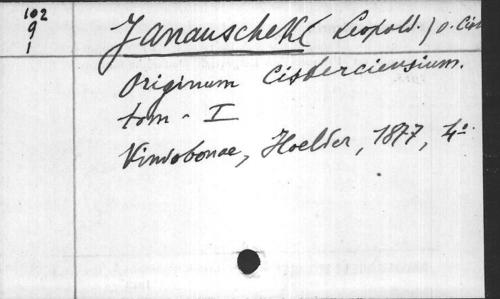 102
9
1
Janauschek (Leopold.) o. Cis
Originum Cisterciensium.
tom. I
Vindobonae, Hoelder, 1877, 4º